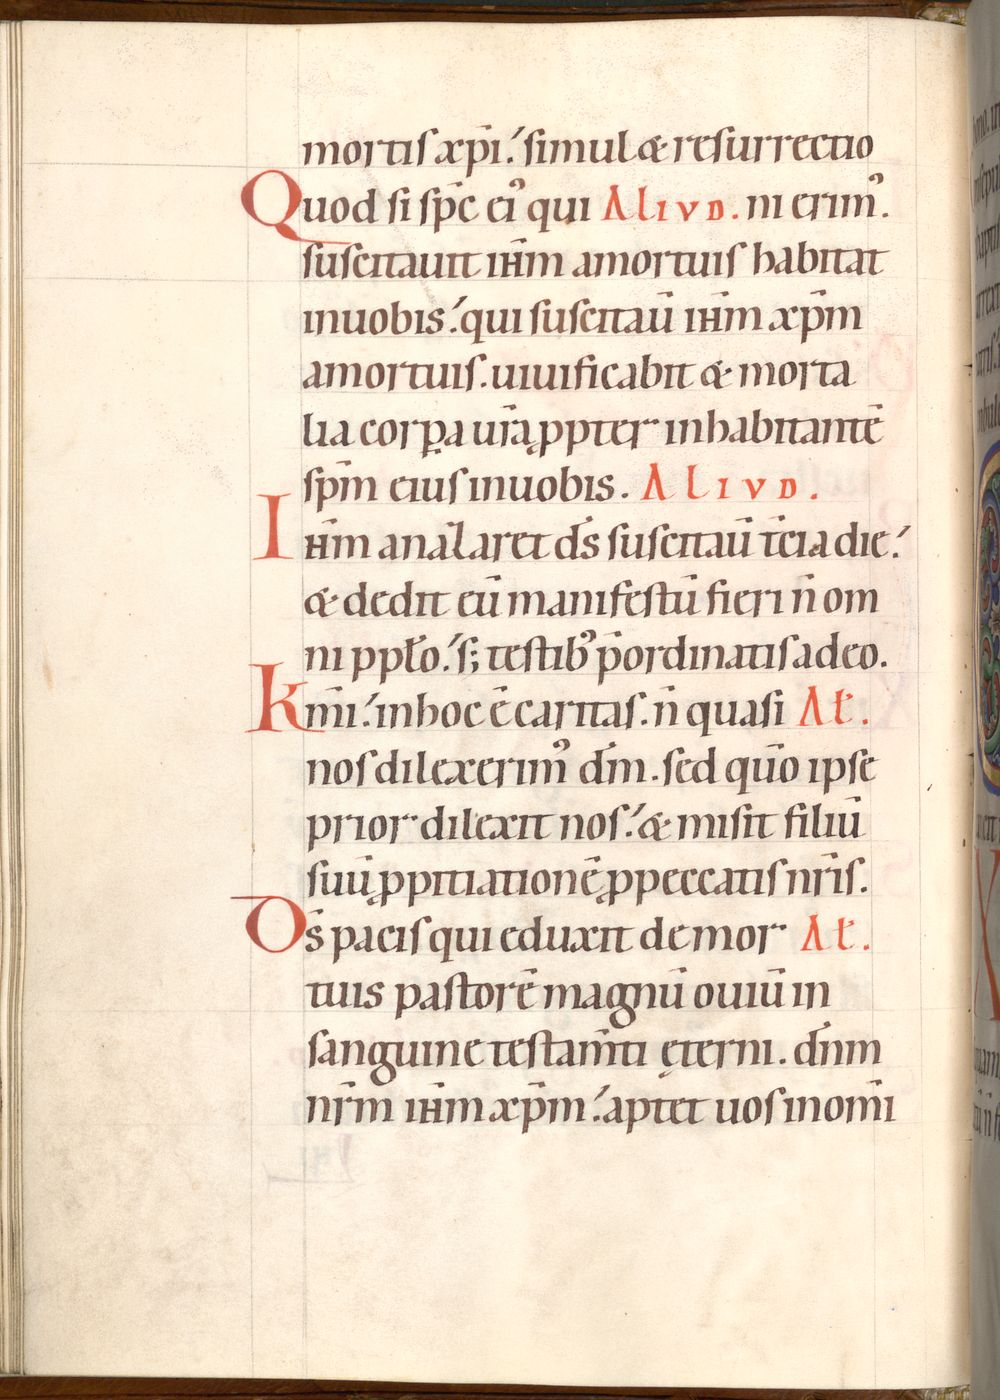 mortis xp̄i. simul & resurrectio
Quod si sp̄c eiꝰ qui ALIVD. ni erimꝰ.
suscitauit ih̄m amortuis habitat
inuobis. qui suscitaū ih̄m xp̄m
amortuis. uiuificabit & morta
lia corꝑa ur̄a ꝓpter inhabitantē
sp̄m eius inuobis. ALIVD.
Ih̄m anaꝉaret d̄s suscitaū t̄cia die.
& dedit eū manifestū fieri n̄ om
ni ppꝉo. s; testibꝰ p̄ordinatis adeo.
Km̄i. inhoc ē caritas. n̄ quasi Aꝉ.
nos dilexerimꝰ dm̄. sed qūo ipse
prior dilexit nos. & misit filiū
suū ꝓpitiationē ꝓpeccatis nr̄is.
Ds̄ pacis qui eduxit de mor Aꝉ.
tuis pastorē magnū ouiū in
sanguine testam̄ti ęterni. dn̄m
nr̄m ih̄m xp̄m. aptet uos inom̄i